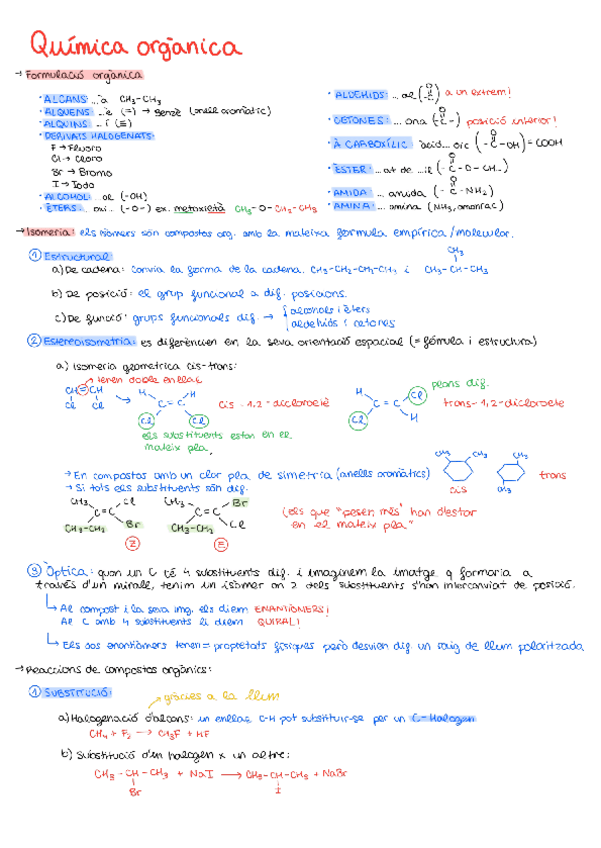 Química orgànica
→ Formulació orgànica
· ALCANS: ...à CH₃-CH₃
· ALQUENS: ...è (=) → benzè (anell aromàtic)
· ALQUINS: ...í (≡)
· DERIVATS HALOGENATS:
F → Fluoro
Cl → Cloro
Br → Bromo
I → Iodo
· ALCOHOL: ...ol (-OH)
· ÈTERS: ...oxi... (-O-) ex. metoxietà CH₃-O-CH₂-CH₃
· ALDEHIDS: ...al (-C-) a un extrem!
O
· CETONES: ...ona (-C-) posició interior!
O
· À CARBOXÍLIC: àcid...oic (-C-OH) = COOH
O
· ÈSTER: ...at de ...il (-C-O-CH...)
O
· AMIDA: ...amida (-C-NH₂)
O
· AMINA: ...amina (NH₃, amoníac)
→ Isomeria: els isòmers són compostos org. amb la mateixa formula empírica/molecular.
① Estructural
a) De cadena: canvia la forma de la cadena. CH₃-CH₂-CH₂-CH₃ i CH₃-CH-CH₃
CH₃
b) De posició: el grup funcional a dif. posicions.
c) De funció: grups funcionals dif. → alcohols i èters
aldehids i cetones
② Estereoisometria: es diferèncien en la seva orientació espacial (= fórmula i estructura)
a) Isomeria geometrica cis-trans:
→ tenen doble enllaç
CH=CH
Cl Cl
→
H H
C=C
Cl Cl
cis-1,2-dicloroetè
els substituents estan en el
mateix pla.
H Cl
C=C
Cl H
plans dif.
trans-1,2-dicloroetè
→ En compostos amb un clar pla de simetria (anells aromàtics)
CH₃ CH₃
cis
CH₃
CH₃
trans
→ Si tots els substituents són dif.
CH₃ Cl
C=C
CH₃-CH₂ Br
Z
CH₃ Br
C=C
CH₃-CH₂ Cl
E
(els que "pesen més" han d'estar
en el mateix pla"
③ Òptica: quan un C té 4 substituents dif. i imaginem la imatge q formaria a
través d'un mirall, tenim un isòmer on 2 dels substituents s'han intercanviat de posició.
↳ Al compost i la seva img. els diem ENANTIÒMERS!
Al C amb 4 substituents li diem QUIRAL!
↳ Els dos enantiòmers tenen = propietats físiques però desvien dif. un raig de llum polaritzada
→ Reaccions de compostos orgànics:
① SUBSTITUCIÓ:
→ gràcies a la llum
a) Halogenació d'alcans: un enllaç C-H pot substituir-se per un C-Halogen
CH₄ + F₂ → CH₃F + HF
b) Substitució d'un halogen x un altre:
CH₃-CH-CH₃ + NaI → CH₃-CH-CH₃ + NaBr
Br I